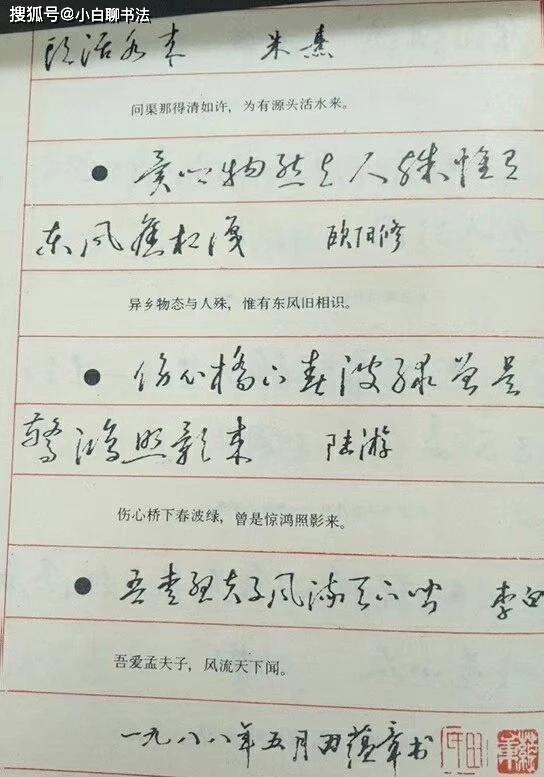 搜狐号@小白聊书法
头活水来 朱熹
问渠那得清如许，为有源头活水来。
异乡物态与人殊惟有
东风旧相识 欧阳修
异乡物态与人殊，惟有东风旧相识。
伤心桥下春波绿曾是
惊鸿照影来 陆游
伤心桥下春波绿，曾是惊鸿照影来。
吾爱孟夫子风流天下闻 李白
吾爱孟夫子，风流天下闻。
一九八八年五月田蕴章书
田蕴章